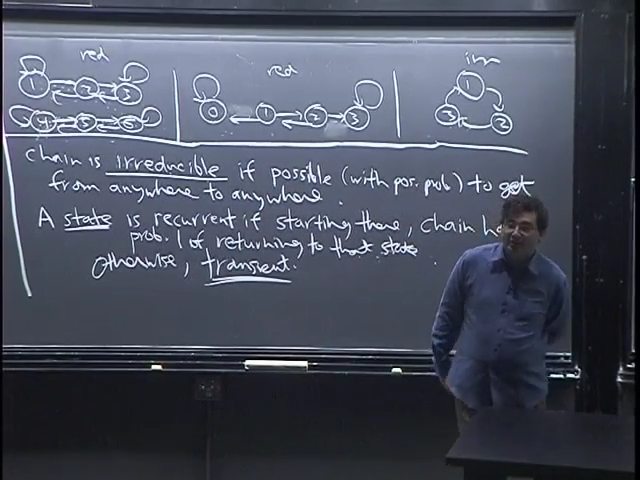 red
red
irr
1 2 3
4 5 6
0 1 2 3
1
3 2
chain is irreducible if possible (with pos. prob) to get
from anywhere to anywhere.
A state is recurrent if starting there, chain ha
prob. 1 of returning to that state
otherwise, transient.